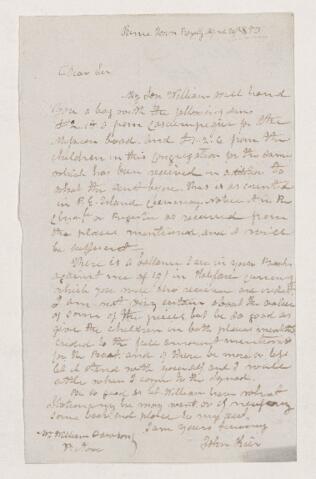 Prince Town April 1853
Dear Sir
My son William will hand
you a bag with the following sums
from Cascumpeque for the
Mission board and from the
children in this congregation for the same
which has been received in addition to
what was sent before. This is as counted
in P. E. Island Currency. Notice it in the
Register as received from
the places mentioned and it will
be sufficient.
There is a ballance I see in your Books
against me of in Halifax currency
which you will also receive and credit
I am not very certain about the value
of some of the pieces but be so good as
give the children in both places
credit to the full amount mentioned
for the Boat. and if there be more or less
let it stand with yourself and I would
settle when I come to the Synod.
Be so good as let William have what
Stationary he may want, or if
some books and place to my acct.
I am yours sincerely
John Keir
Mr William Dawson